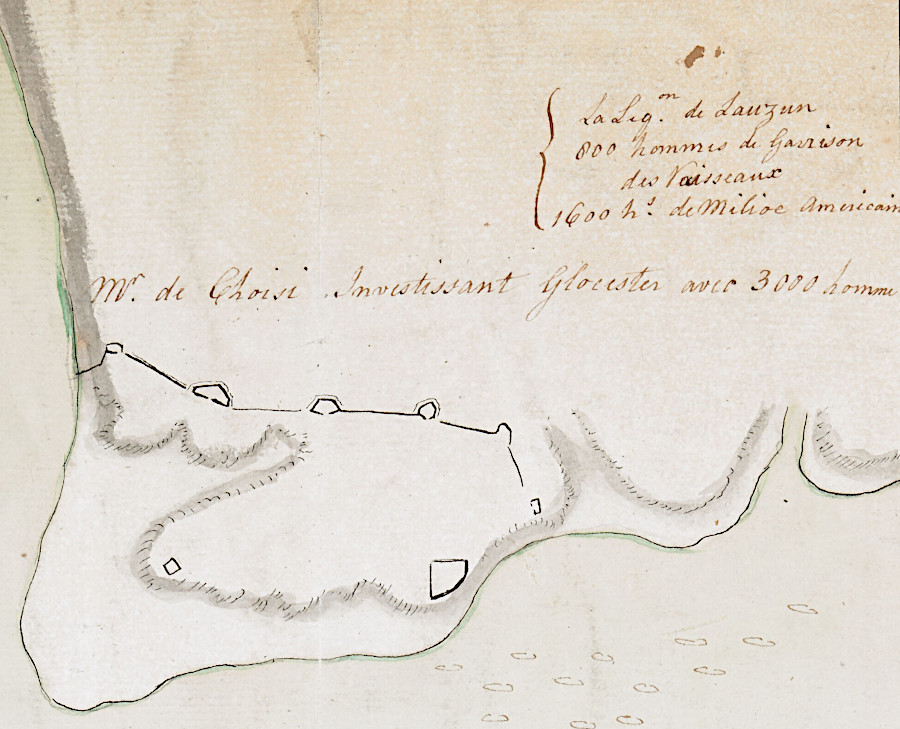 La Leg.on de Lauzun
800 hommes de Garrison
des Vaisseaux
1600 h.s de Milice Americain
Mr. de Choisi Investissant Glocester avec 3000 homme